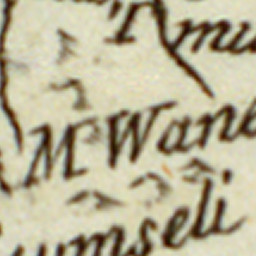 Amu
M Wane
umseli